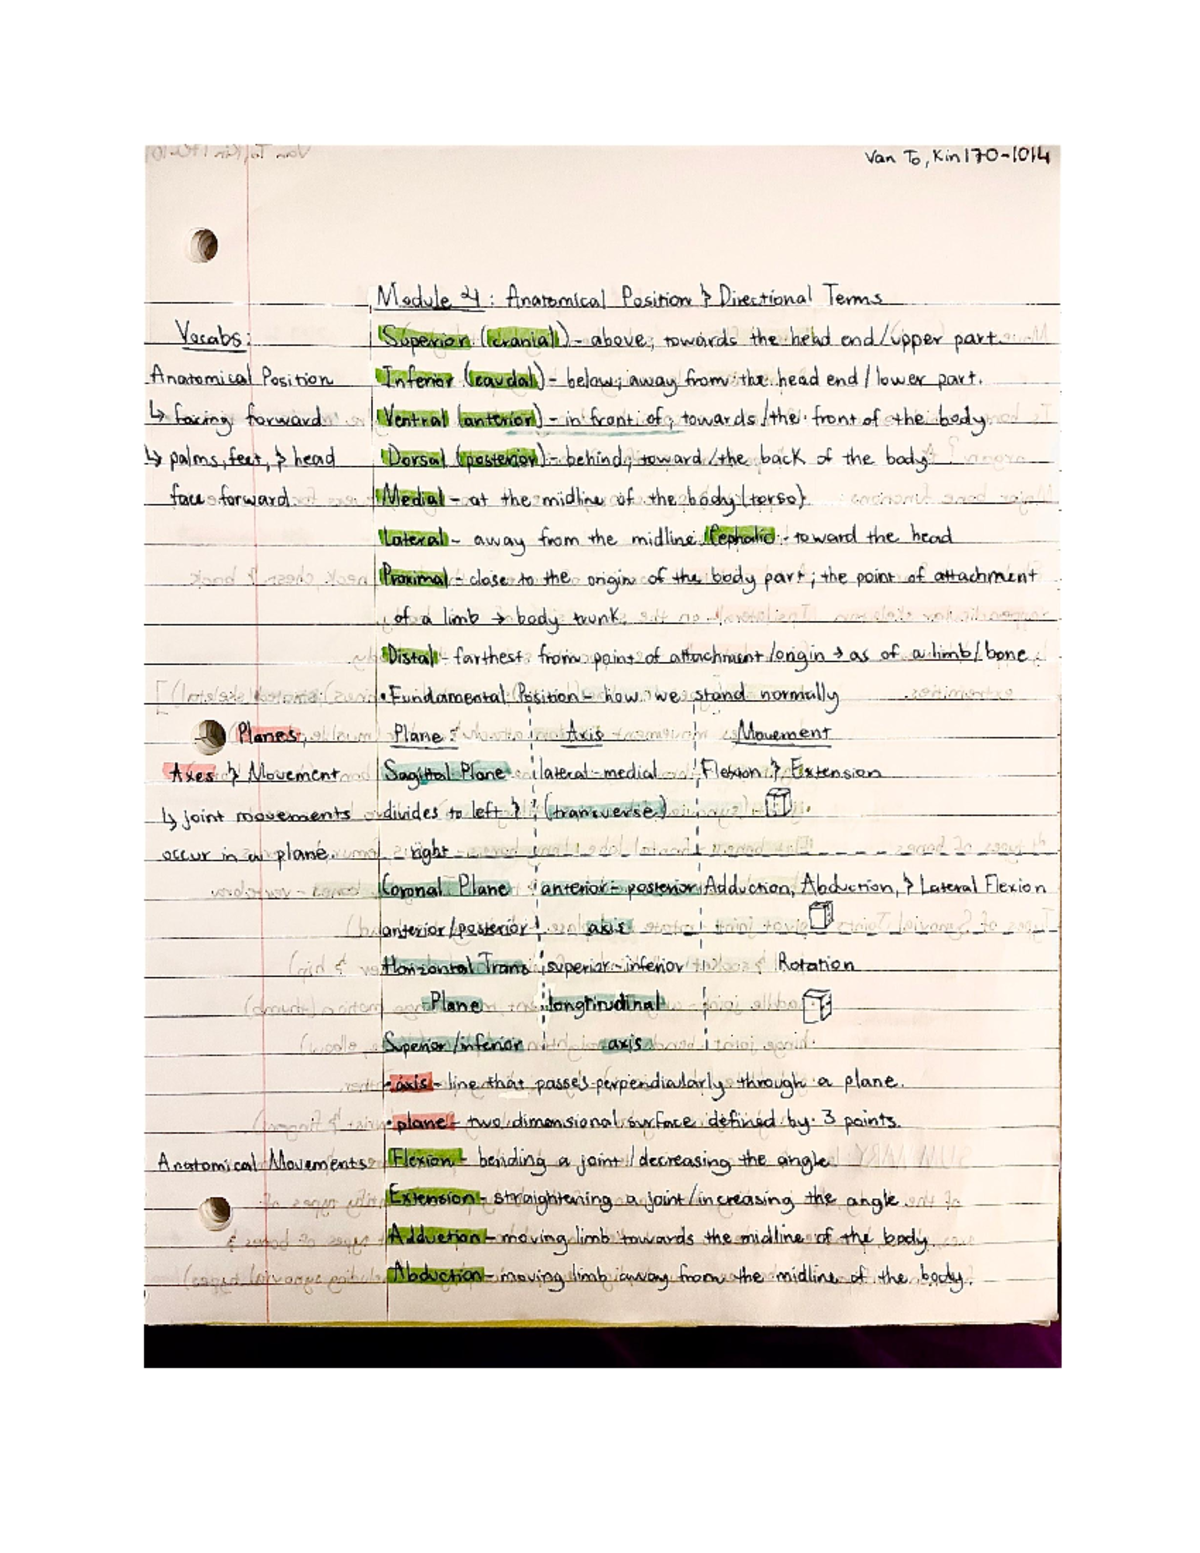 Van To, Kin 170-1014
Module 4: Anatomical Position & Directional Terms
Vocabs:
Superior (cranial) - above; towards the head end/upper part.
Anatomical Position
Inferior (caudal) - below; away from the head end/lower part.
↳ facing forward
Ventral (anterior) - in front of; towards/the front of the body
↳ palms, feet, & head
Dorsal (posterior) - behind; toward/the back of the body
face forward
Medial - at the midline of the body (torso)
Lateral - away from the midline. Cephalic - toward the head
Proximal - close to the origin of the body part; the point of attachment
of a limb → body trunk.
Distal - farthest from point of attachment/origin → as of a limb/bone
• Fundamental Position - how we stand normally
Planes, Plane: Axis Movement
Axes & Movement Sagittal Plane lateral-medial Flexion & Extension
↳ joint movements divides to left & (transverse)
occur in a plane. right
Coronal Plane anterior-posterior Adduction, Abduction, & Lateral Flexion
anterior/posterior axis
Horizontal Trans superior-inferior Rotation
Plane longtirudinal
Superior/inferior axis
• axis - line that passes perpendicularly through a plane.
• plane - two dimensional surface defined by 3 points.
Anatomical Movements Flexion - bending a joint/decreasing the angle
Extension - straightening a joint/increasing the angle
Adduction - moving limb towards the midline of the body
Abduction - moving limb away from the midline of the body.